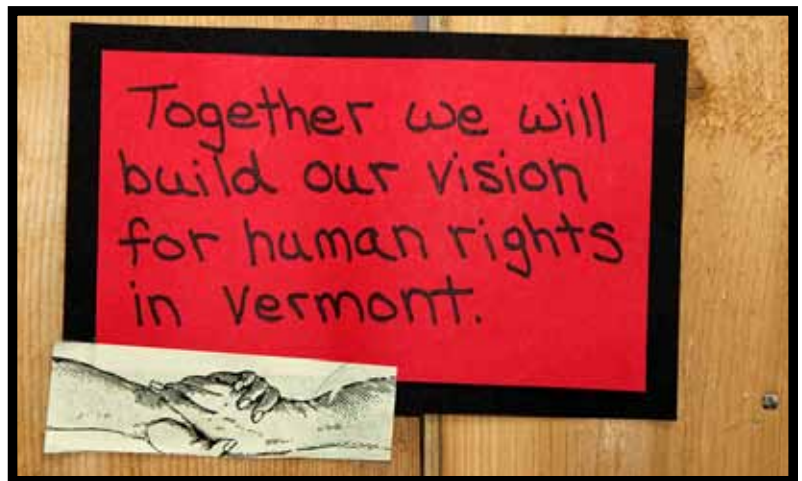 Together we will
build our vision
for human rights
in Vermont.